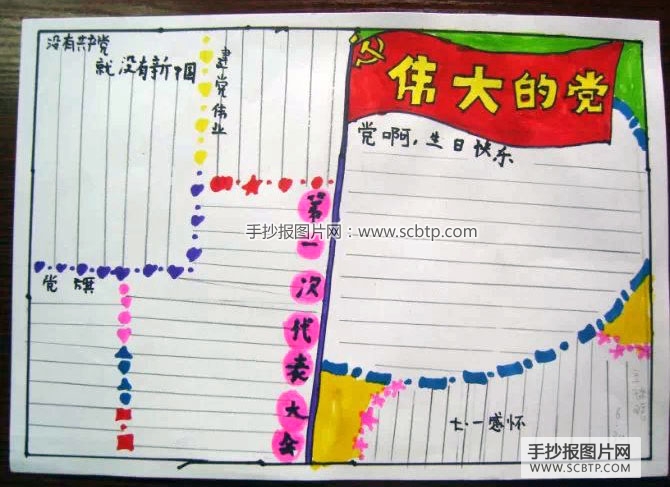 没有共产党
就没有新中国
建党伟业
伟大的党
党啊，生日快乐
手抄报图片网：www.scbtp.com
第一次代表大会
党旗
七·一感怀
手抄报图片网
WWW.SCBTP.COM